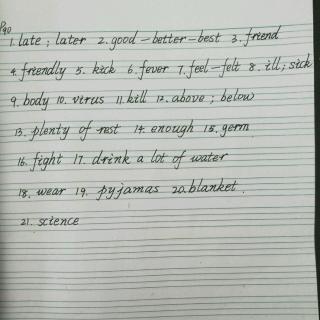 P90
1. late ; later 2. good - better - best 3. friend
4. friendly 5. kick 6. fever 7. feel - felt 8. ill; sick
9. body 10. virus 11. kill 12. above ; below
13. plenty of rest 14. enough 15. germ
16. fight 17. drink a lot of water
18. wear 19. pyjamas 20. blanket.
21. science